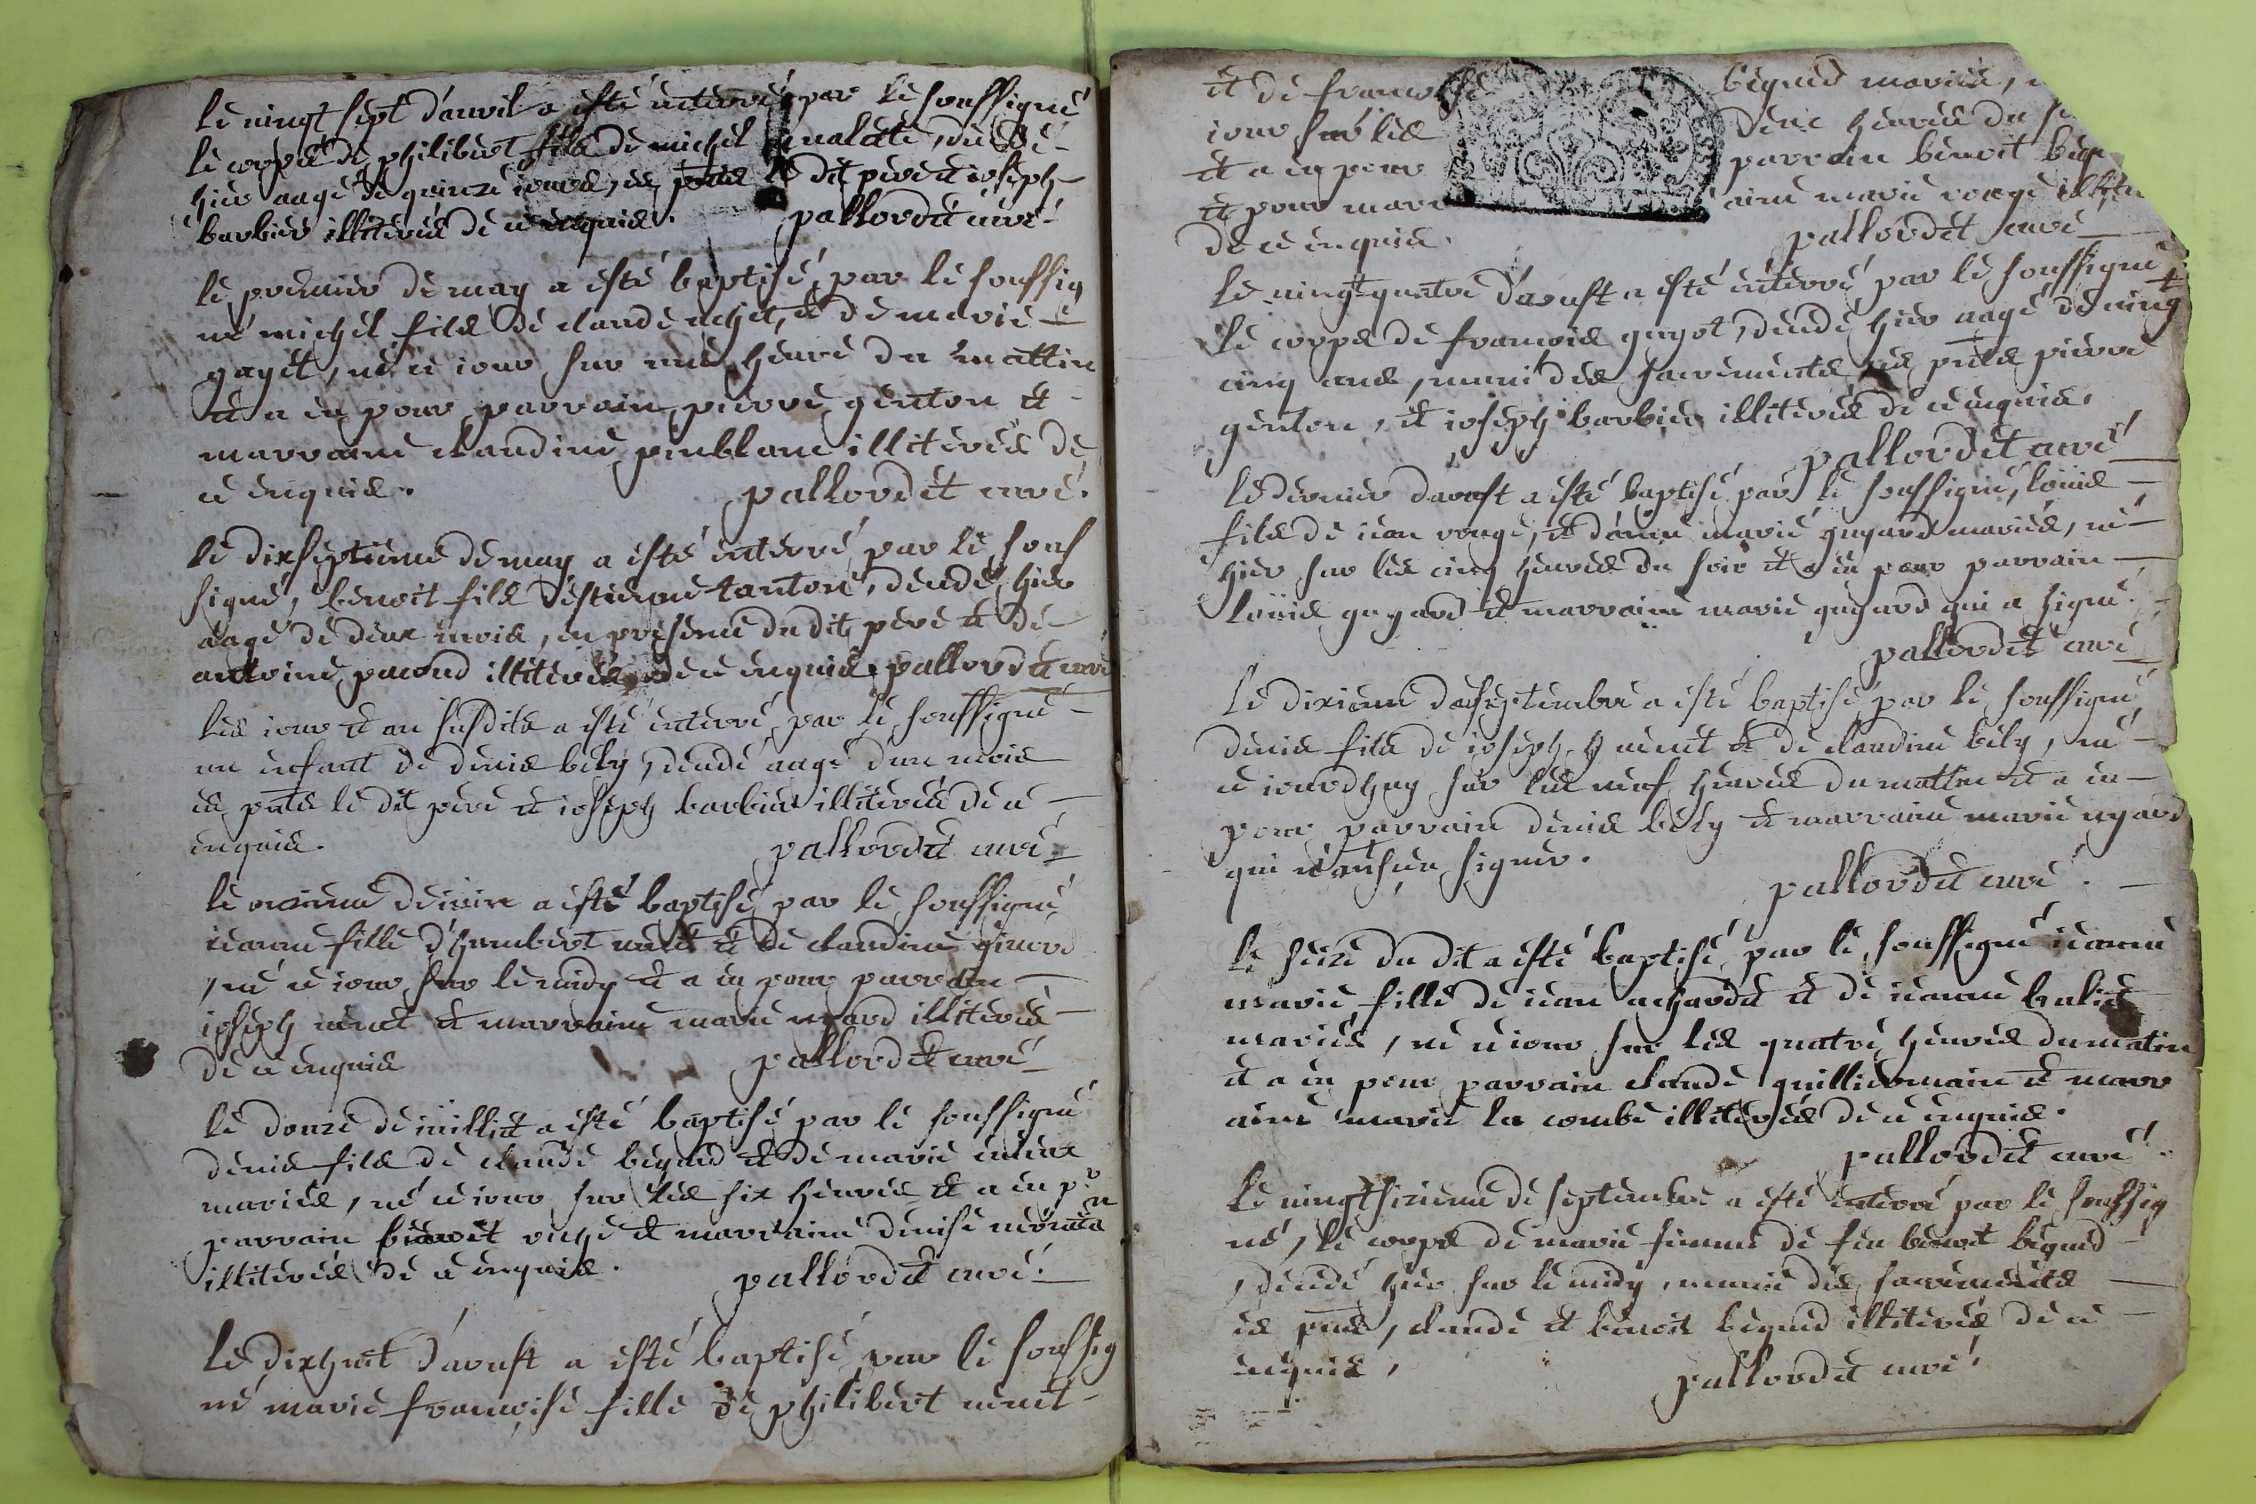 le vingt sept d'avril a esté enterré par le soussigné
le corps de philibert fils de michel
hier aagé de quinze jours, es pnts le dit pere et joseph
barbier illiterés de ce enquis. pallordet curé.
le premier de may a esté baptisé, par le soussig
né michel fils de claude et de marie
gayet, né ce jour sur une heure du mattin
et a eu pour parrain pierre genton et
marraine claudine illiterés de
ce enquis. pallordet curé.
le dixseptieme de may a esté enterré par le sous
signé, benoit fils d'estienne decedé hier
aagé de deux mois, en presence du dit pere et de
antoine pacoud illiterés de ce enquis pallordet curé
les jour et an susdits a esté enterré par le soussigné
un enfant de denis bély, decedé aagé d'un mois
es pnts le dit pere et joseph barbier illiterés de ce
enquis. pallordet curé
le onzieme de a esté baptisé par le soussigné
jeanne fille d'humbert et de claudine
né ce jour sur le midy et a eu pour parrain
joseph et marraine marie illiterés
de ce enquis pallordet curé
le douze de juillet a esté baptisé par le soussigné
denis fils de claude beguid et de marie
mariés, né ce jour sur les six heures et a eu pr
parrain benoit et marraine denise
illiterés de ce enquis. pallordet curé.
le dixhuit d'aoust a esté baptisé par le soussig
né marie françoise fille de philibert
et de françoise beguid mariés,
jour sur les heures du
et a eu pour parrain benoit
et pour marr aine marie rongé
de ce enquis. pallordet curé
le vingtquatre d'aoust a esté enterré par le soussigné
le corps de françois guyot, decedé hier aagé de vingt
cinq ans, muni des sacrements es pnts pierre
genton, et joseph barbier illiterés de ce enquis.
pallordet curé
le dernier d'aoust a esté baptisé par le soussigné, loüis
fils de jean rongé, et d'anne marie guyard mariés, né
hier sur les cinq heures du soir et a eu pour parrain
loüis guyard et marraine marie guyard qui a signé.
pallordet curé
le dixieme de septembre a esté baptisé par le soussigné
denis fils de joseph et de claudine bély, né
ce jourdhuy sur les neuf heures du mattin et a eu
pour parrain denis bély et marraine marie
qui n'ont sceu signer.
pallordet curé.
le seize du dit a esté baptisé par le soussigné jeanne
marie, fille de jean et de jeanne
mariés, né ce jour sur les quatre heures du matin
et a eu pour parrain claude guilliermain et marr
aine marie la combe illiterés de ce enquis.
pallordet curé.
le vingtsixieme de septembre a esté enterré par le soussig
né, le corps de marie femme de feu benoit beguid
decedé hier sur le midy, munie des sacrements
es pnts, claude et benoit beguid illiterés de ce
enquis, pallordet curé